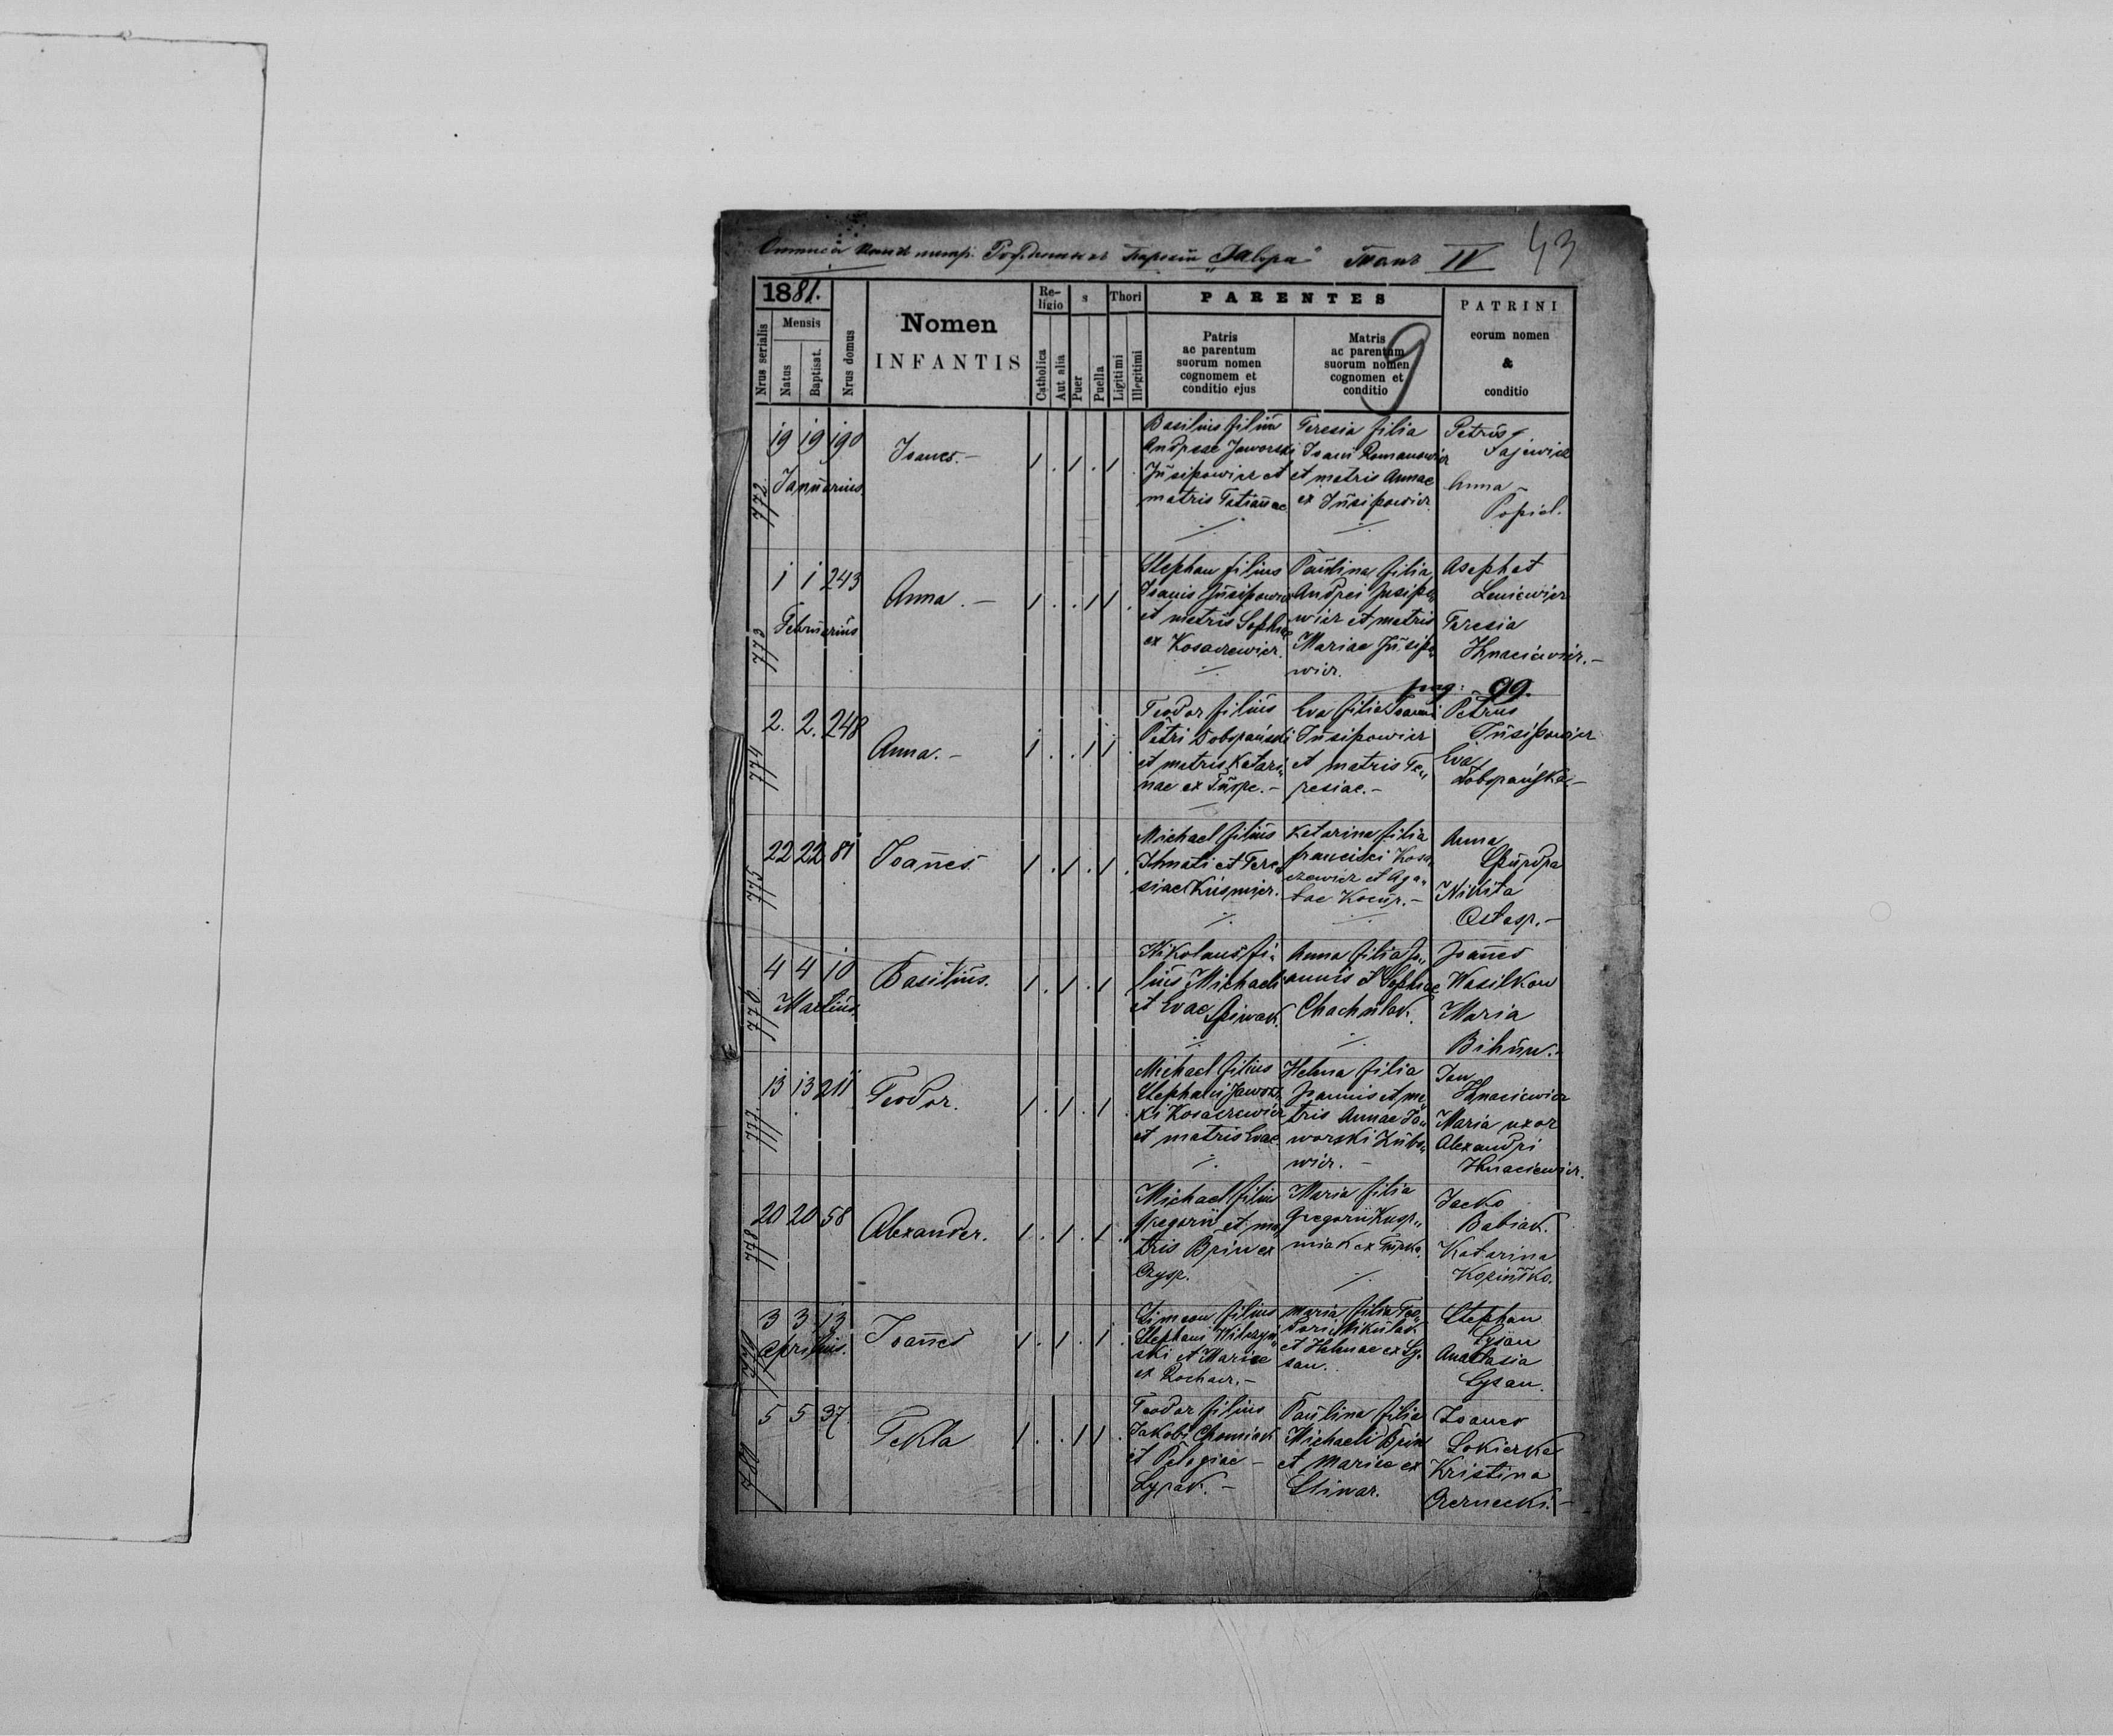 метр. Парохіи "Явора" Томъ IV 43
1881.
Nrus serialis
Mensis
Natus
Baptisat.
Nrus domus
Nomen
INFANTIS
Re-
ligio
s
Thori
Catholica
Aut alia
Puer
Puella
Ligitimi
Illegitimi
PARENTES
Patris
ac parentum
suorum nomen
cognomem et
conditio ejus
Matris
ac parentum
suorum nomen
cognomen et
conditio
9
PATRINI
eorum nomen
&
conditio
772 19 19 190
Januarius
Joanes.-
1 . 1 . 1 .
Basilius filius
Andreae Jaworski
Jusipowicz et
matris Tatianae
Teresia filia
Joani Romanowicz
et matris Annae
ex Jusipowicz
Petrus
Fajewicz
Anna -
Popiel.
773 1 1 243
Februarius
Anna. -
1 . . 1 1 .
Stephan filius
Joanis Jusipowicz
et matris Sophiae
ex Kosaczewicz.
Paulina filia
Andrei Jusipo„
wicz et matris
Mariae Jusipo„
wicz.
Asephat
Leniewicz
Teresia
Hnaciewicz.-
pag: 99.
774 2. 2. 248
Anna.-
1 . . 1 1 .
Teodor filius
Petri Dobrzański
et matris Katari„
nae ex -
Eva filia Joanni
Jusipowicz
et matris Te„
resiae.-
Petrus
Jusipowicz
Eva
Dobrzańska.-
775 22 22 81
Joannes
1 . 1 . 1 .
Michael filius
Ihnati et Tere„
siae Kusmicz.
Katarina filia
francisci Kosa„
czewicz et Aga„
tae Kocur.-
Anna
Nikita
Ostasz.-
776 4 4 10
Martius.
Basilius.
1 . 1 . 1
Nikolaus fi„
lius Michaeli
et Evae Spiwak.
Anna filia Jo„
annis et Sophiae
Chachulak.
Joanes
Wasilkow
Maria
Bihun.
777. 13 13 211
Teodor.
1 . 1 . 1 .
Michael filius
Stephani Jawors„
ki Kosaczewicz
et matris Evae.
Helena filia
Joannis et ma„
tris Annae Ja„
worski Kuba„
wicz. -
Jan
Hnaciewicz
Maria uxor
Alexandri
Hnaciewicz.
778 20 20 58
Alexander.
1 . 1 . 1 .
Michael filius
Gregorii et ma„
tris Bryn ex
Maria filia
Gregorii
ex
Jacko
Babiak.
Katarina
779 3 3 13
Aprilius.
Joannes
1 . 1 . 1 .
Simeon filius
Stephani Milczyń„
ski et Mariae
ex -
Maria filia Teo„
dori Mikulak
et Helenae ex Ly„
san.
Stephan
Lysan
Anastasia
Lysan.
780 5 5 37
Tekla
1 . . 1 1 .
Teodor filius
Jakobi Chomiak
et Pelagiae -
Lysak. -
Paulina filia
Michaeli Bryn
et Mariae ex
Joanes
Lokierka
Kristina
Czernecki.-